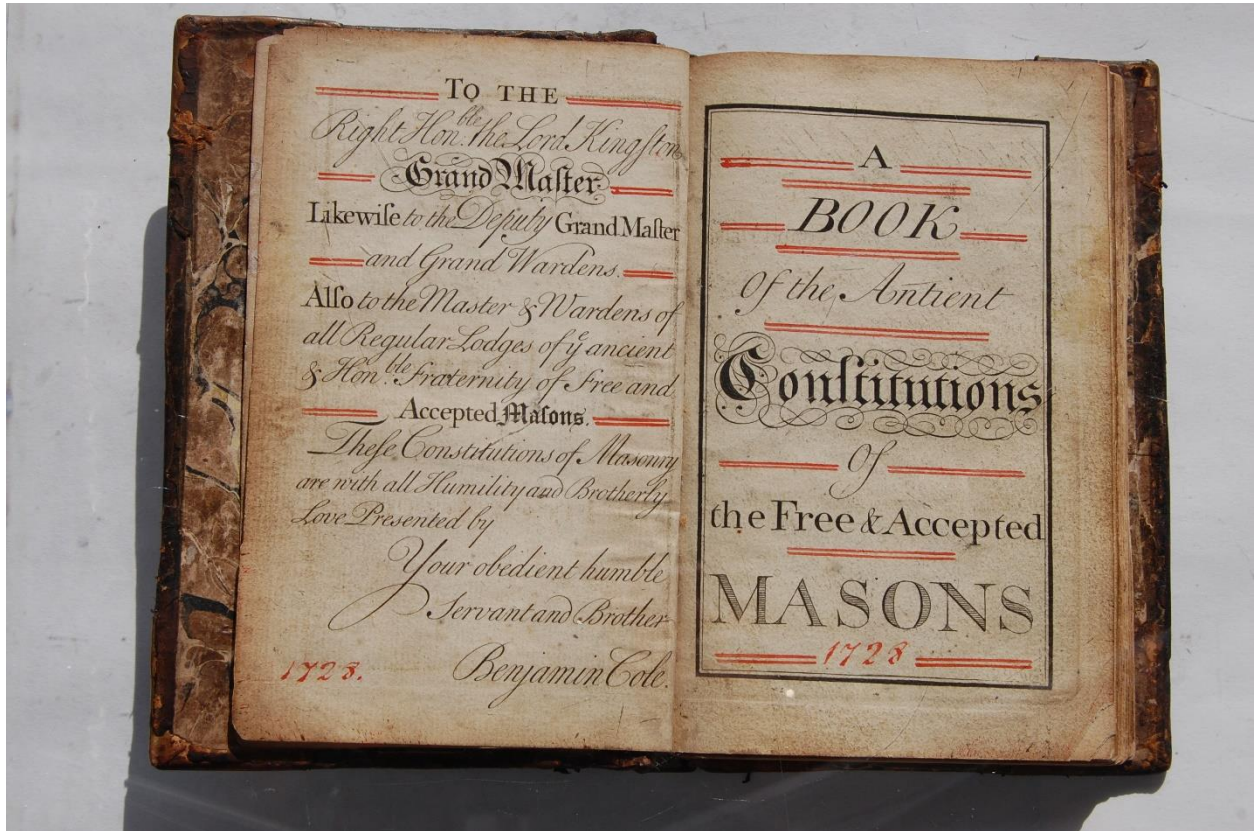 TO THE
Right Hon.ble the Lord Kingſton
Grand Maſter
Likewiſe to the Deputy Grand Maſter
and Grand Wardens.
Alſo to the Master & Wardens of
all Regular Lodges of ye ancient
& Hon.ble Fraternity of Free and
Accepted Maſons.
Theſe Constitutions of Masonry
are with all Humility and Brotherly
Love Presented by
Your obedient humble
Servant and Brother
1728. Benjamin Cole.
A
BOOK
Of the Antient
Conſtitutions
Of
the Free & Accepted
MASONS
1728